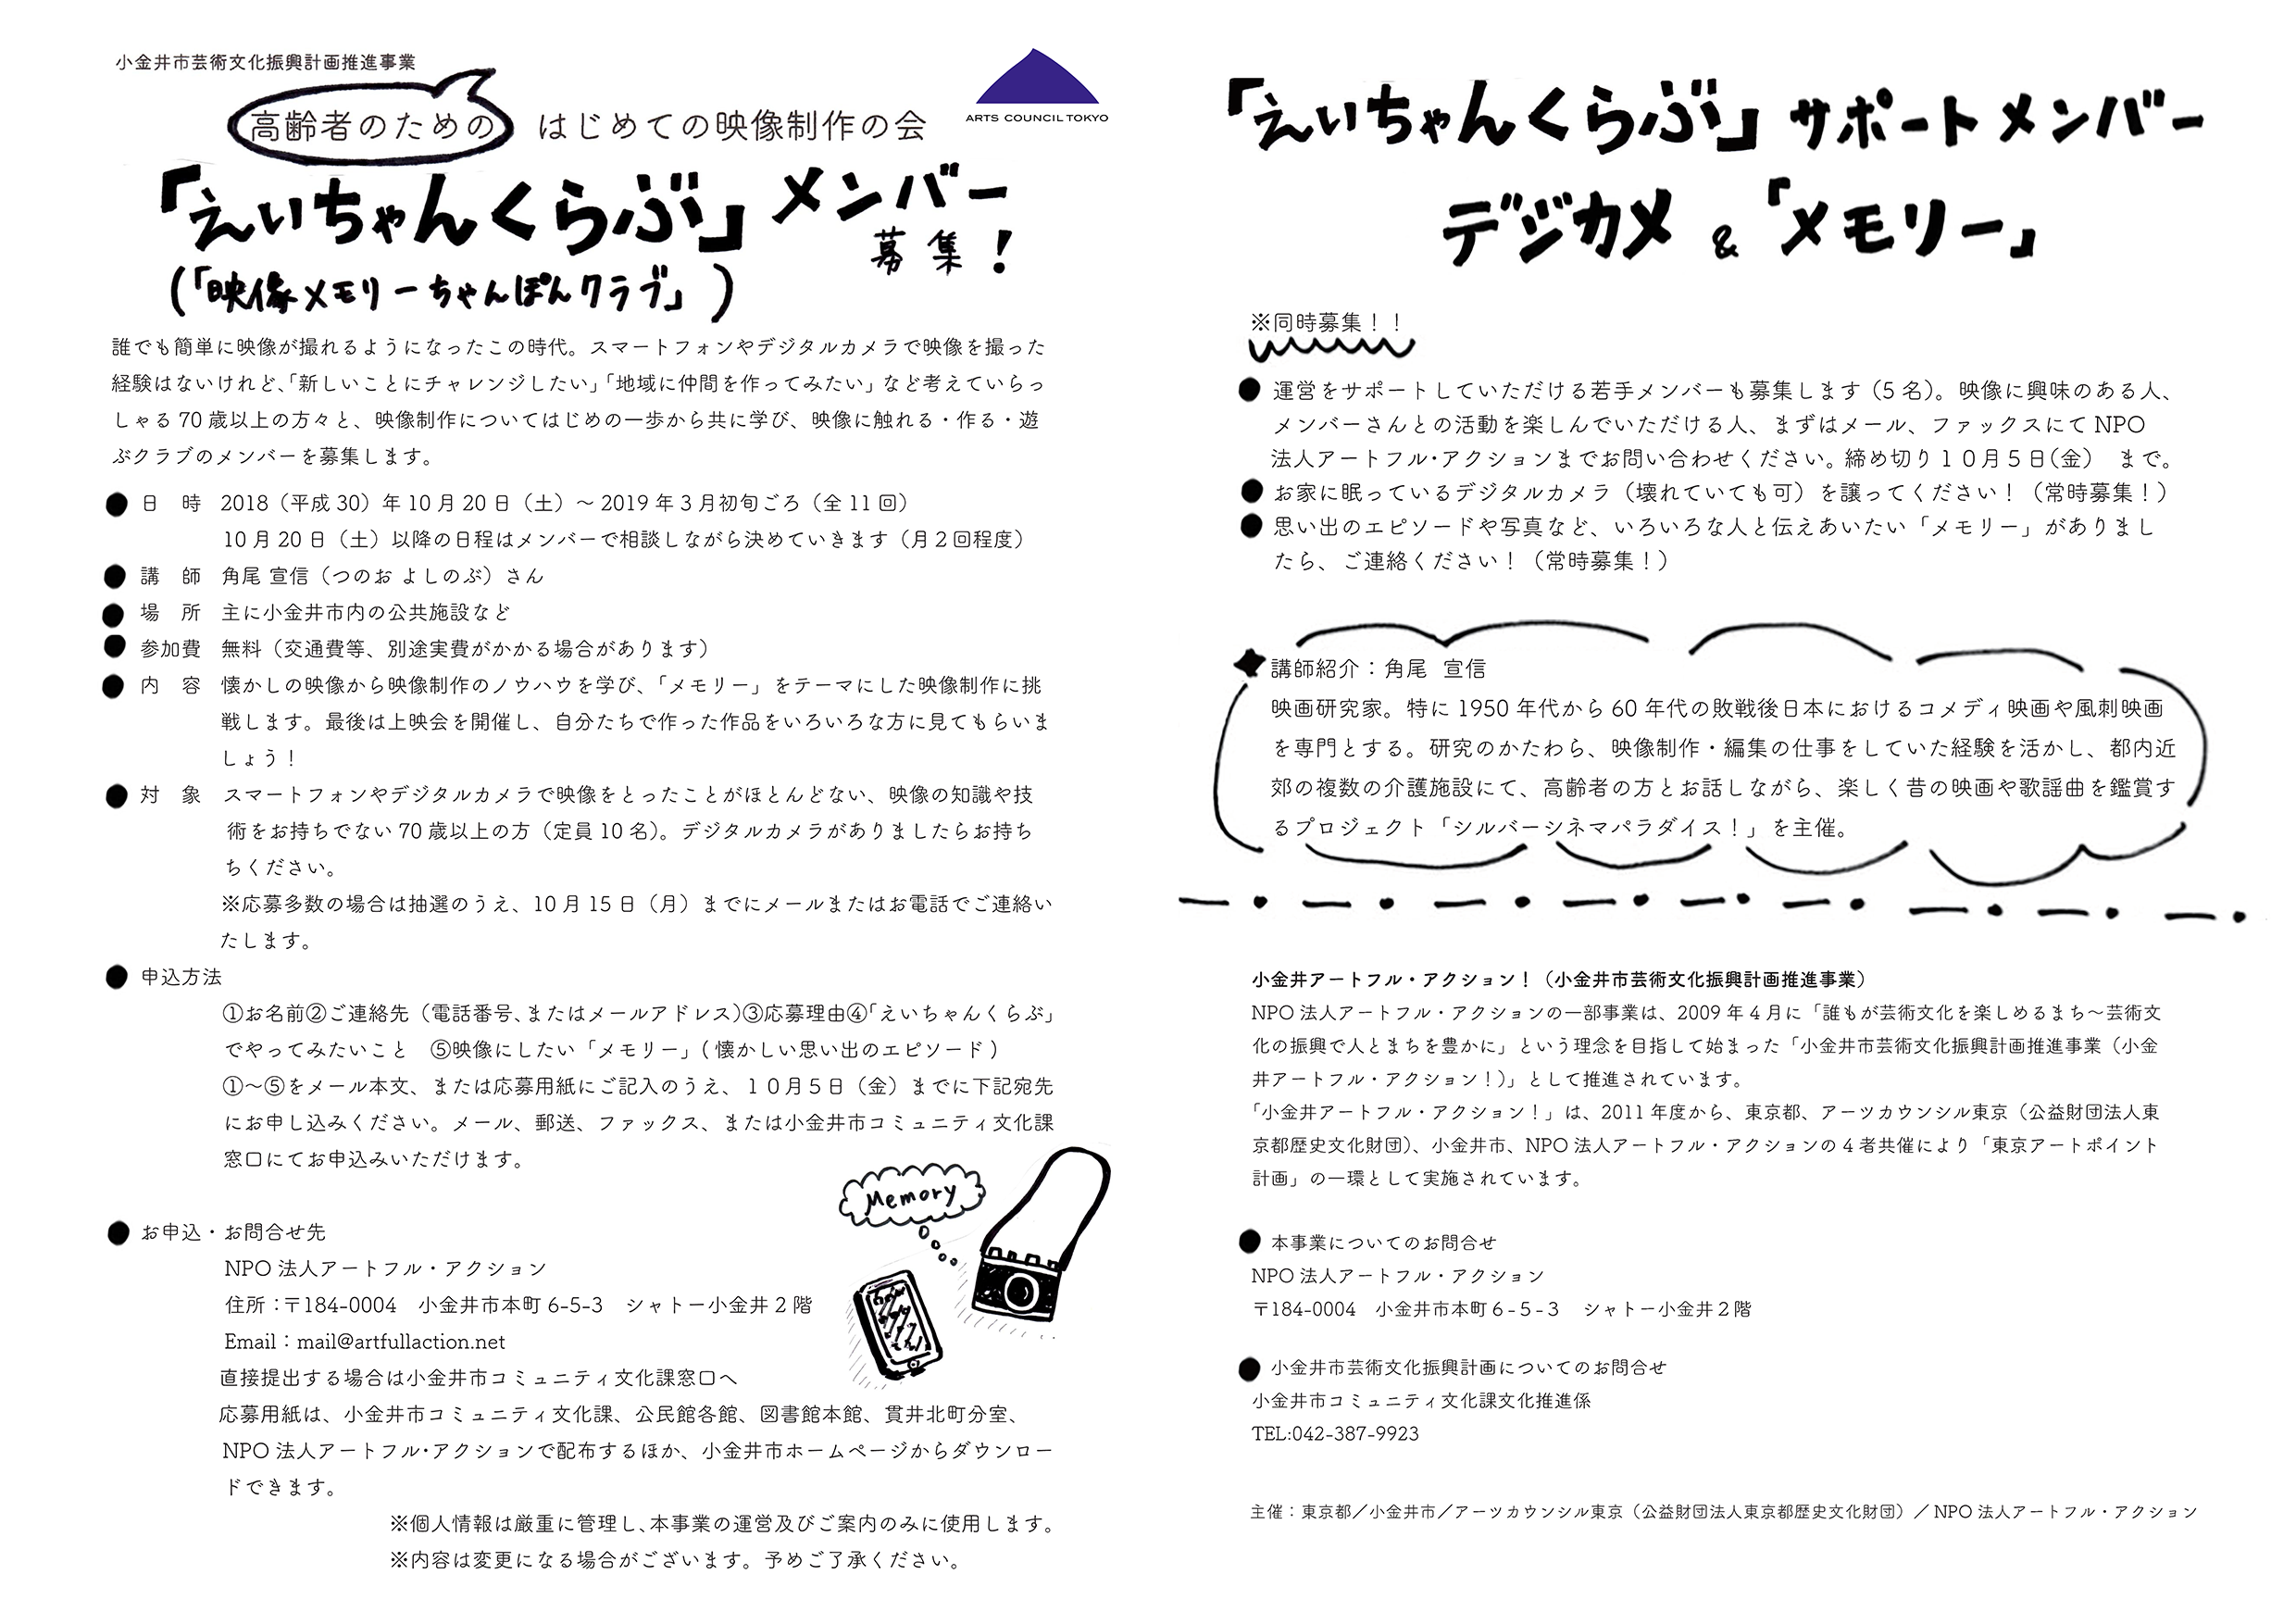 小金井市芸術文化振興計画推進事業
高齢者のための はじめての映像制作の会
ARTS COUNCIL TOKYO
「えいちゃんくらぶ」メンバー
募集！
（「映像メモリーちゃんぽんクラブ」）
誰でも簡単に映像が撮れるようになったこの時代。スマートフォンやデジタルカメラで映像を撮った
経験はないけれど、「新しいことにチャレンジしたい」「地域に仲間を作ってみたい」など考えていらっ
しゃる 70 歳以上の方々と、映像制作についてはじめの一歩から共に学び、映像に触れる・作る・遊
ぶクラブのメンバーを募集します。
● 日　時　2018（平成 30）年 10 月 20 日（土）～ 2019 年 3 月初旬ごろ（全 11 回）
10 月 20 日（土）以降の日程はメンバーで相談しながら決めていきます（月２回程度）
● 講　師　角尾 宣信（つのお よしのぶ）さん
● 場　所　主に小金井市内の公共施設など
● 参加費　無料（交通費等、別途実費がかかる場合があります）
● 内　容　懐かしの映像から映像制作のノウハウを学び、「メモリー」をテーマにした映像制作に挑
戦します。最後は上映会を開催し、自分たちで作った作品をいろいろな方に見てもらいま
しょう！
● 対　象　スマートフォンやデジタルカメラで映像をとったことがほとんどない、映像の知識や技
術をお持ちでない 70 歳以上の方（定員 10 名）。デジタルカメラがありましたらお持ち
ちください。
※応募多数の場合は抽選のうえ、10 月 15 日（月）までにメールまたはお電話でご連絡い
たします。
● 申込方法
①お名前②ご連絡先（電話番号、またはメールアドレス）③応募理由④「えいちゃんくらぶ」
でやってみたいこと　⑤映像にしたい「メモリー」( 懐かしい思い出のエピソード )
①～⑤をメール本文、または応募用紙にご記入のうえ、１０月５日（金）までに下記宛先
にお申し込みください。メール、郵送、ファックス、または小金井市コミュニティ文化課
窓口にてお申込みいただけます。
Memory
● お申込・お問合せ先
NPO 法人アートフル・アクション
住所：〒184-0004　小金井市本町 6-5-3　シャトー小金井 2 階
Email：mail@artfullaction.net
直接提出する場合は小金井市コミュニティ文化課窓口へ
応募用紙は、小金井市コミュニティ文化課、公民館各館、図書館本館、貫井北町分室、
NPO 法人アートフル・アクションで配布するほか、小金井市ホームページからダウンロー
ドできます。
※個人情報は厳重に管理し、本事業の運営及びご案内のみに使用します。
※内容は変更になる場合がございます。予めご了承ください。
「えいちゃんくらぶ」サポートメンバー
デジカメ &「メモリー」
※同時募集！！
● 運営をサポートしていただける若手メンバーも募集します（5 名）。映像に興味のある人、
メンバーさんとの活動を楽しんでいただける人、まずはメール、ファックスにて NPO
法人アートフル・アクションまでお問い合わせください。締め切り１０月５日（金）　まで。
● お家に眠っているデジタルカメラ（壊れていても可）を譲ってください！（常時募集！）
● 思い出のエピソードや写真など、いろいろな人と伝えあいたい「メモリー」がありまし
たら、ご連絡ください！（常時募集！）
講師紹介：角尾 宣信
映画研究家。特に 1950 年代から 60 年代の敗戦後日本におけるコメディ映画や風刺映画
を専門とする。研究のかたわら、映像制作・編集の仕事をしていた経験を活かし、都内近
郊の複数の介護施設にて、高齢者の方とお話しながら、楽しく昔の映画や歌謡曲を鑑賞す
るプロジェクト「シルバーシネマパラダイス！」を主催。
小金井アートフル・アクション！（小金井市芸術文化振興計画推進事業）
NPO 法人アートフル・アクションの一部事業は、2009 年 4 月に「誰もが芸術文化を楽しめるまち～芸術文
化の振興で人とまちを豊かに」という理念を目指して始まった「小金井市芸術文化振興計画推進事業（小金
井アートフル・アクション！）」として推進されています。
「小金井アートフル・アクション！」は、2011 年度から、東京都、アーツカウンシル東京（公益財団法人東
京都歴史文化財団）、小金井市、NPO 法人アートフル・アクションの 4 者共催により「東京アートポイント
計画」の一環として実施されています。
● 本事業についてのお問合せ
NPO 法人アートフル・アクション
〒184-0004　小金井市本町６-５-３　シャトー小金井２階
● 小金井市芸術文化振興計画についてのお問合せ
小金井市コミュニティ文化課文化推進係
TEL:042-387-9923
主催：東京都／小金井市／アーツカウンシル東京（公益財団法人東京都歴史文化財団）／ NPO 法人アートフル・アクション